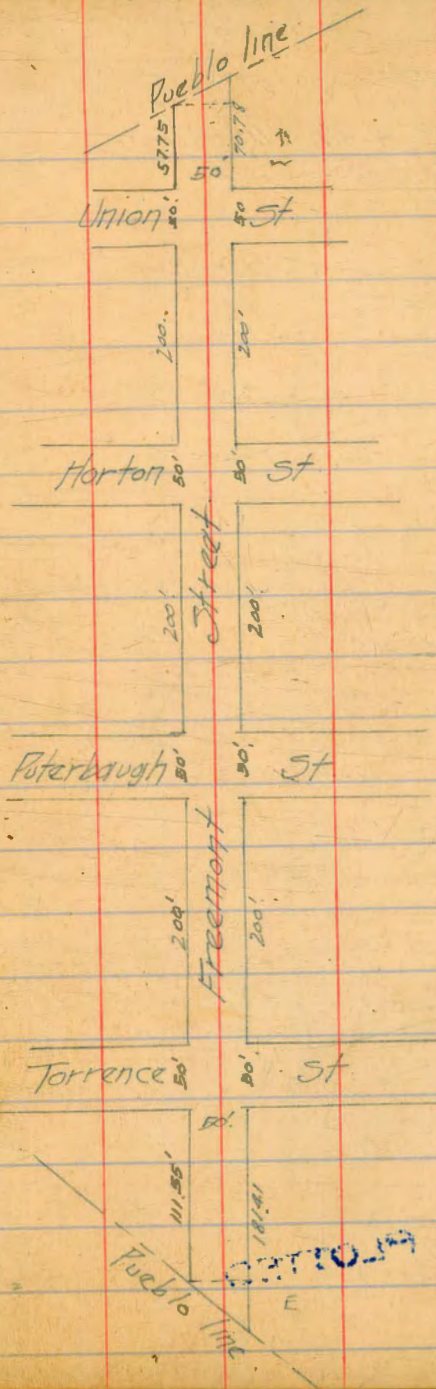 Pueblo line
57.75 70.78
50'
Union 50' 50 St
200.. 200'
Horton 50' 50' St
Street
200' 200'
Puterbaugh 50' 50' St
Freemont
200' 200'
Torrence 50' 50' St
50'
111.55' 181.41
Pueblo line
E